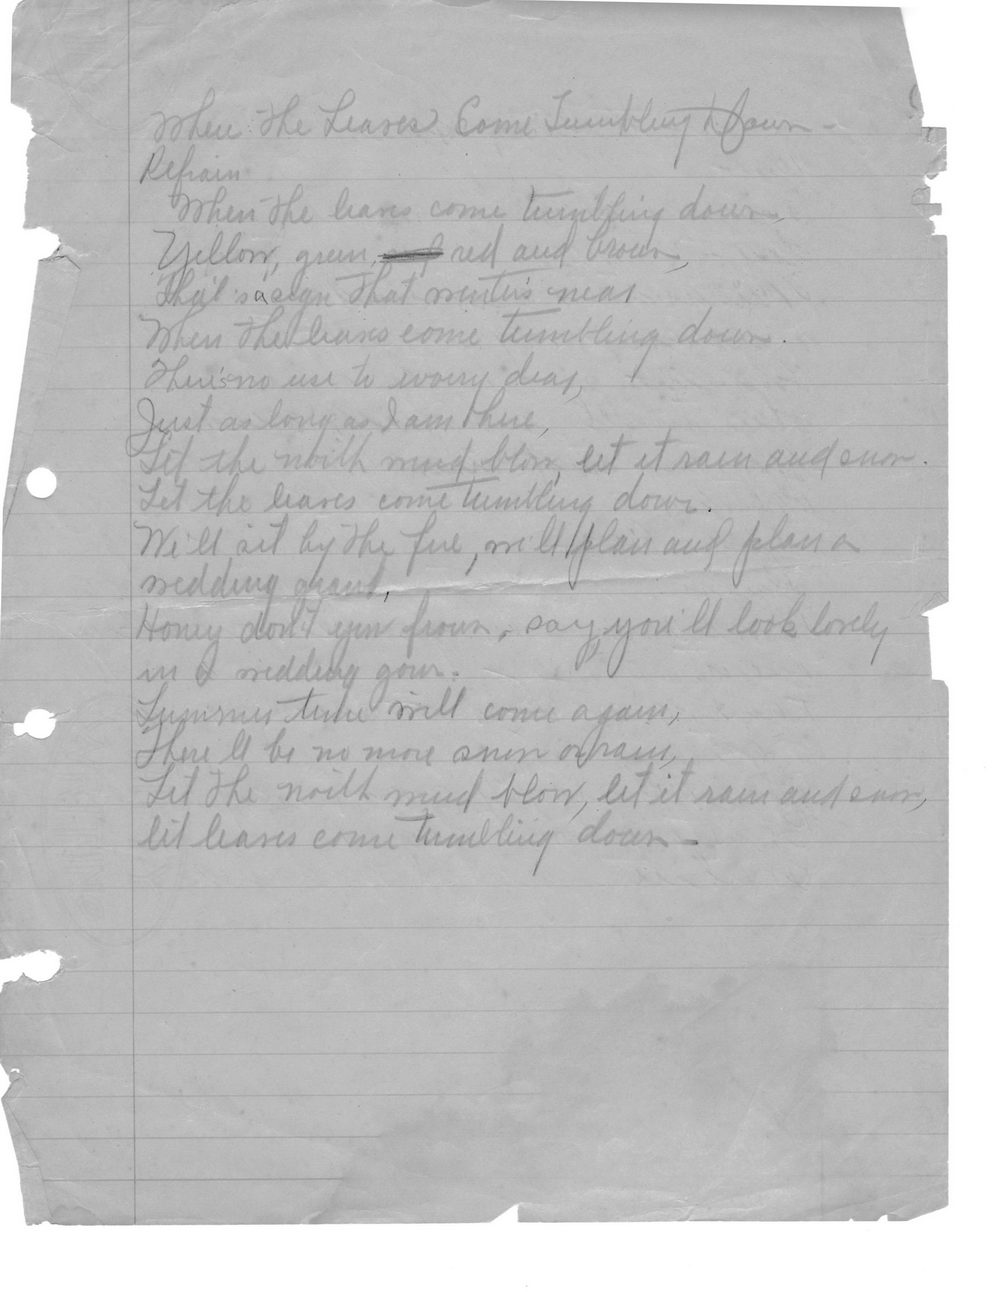 When The Leaves Come Tumbling Down -
Refrain
When the leaves come tumbling down,
Yellow, green, red and brown,
That's a sign that winter's near
When the leaves come tumbling down.
There's no use to worry dear,
Just as long as I am here,
Let the north wind blow, let it rain and snow.
Let the leaves come tumbling down.
We'll sit by the fire, we'll plan and plan a
wedding grand,
Honey don't you frown, say you'll look lovely
in a wedding gown.
Summer time will come again,
There'll be no more snow or rain,
Let the north wind blow, let it rain and snow,
let leaves come tumbling down -